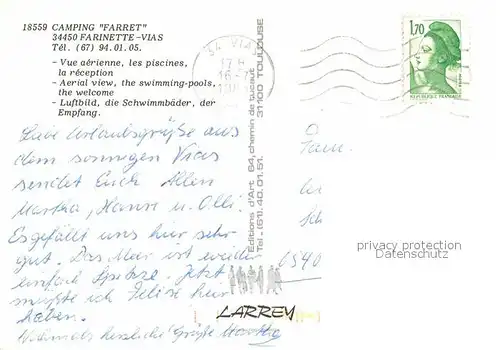 18559 CAMPING "FARRET"
34450 FARINETTE-VIAS
Tél. (67) 94.01.05.
- Vue aérienne, les piscines,
la réception
- Aerial view, the swimming-pools,
the welcome
- Luftbild, die Schwimmbäder, der
Empfang.
34 VIAS
17 H
16-7
1,70
REPUBLIQUE FRANÇAISE
Liebe Urlaubsgrüße aus
dem sonnigen Vias
sendet Euch Allen
Martha, Hanne u. Olli.
Es gefällt uns hier sehr
gut. Das Meer ist wieder
einfach Spitze. Jetzt
müßte ich Felise hier
haben.
Nochmals herzliche Grüße Martha
Editions d'Art
64, chemin de
31100 TOULOUSE
Tél. (61) 40.01.51.
LARREY
Fam.
6340
privacy protection
Datenschutz